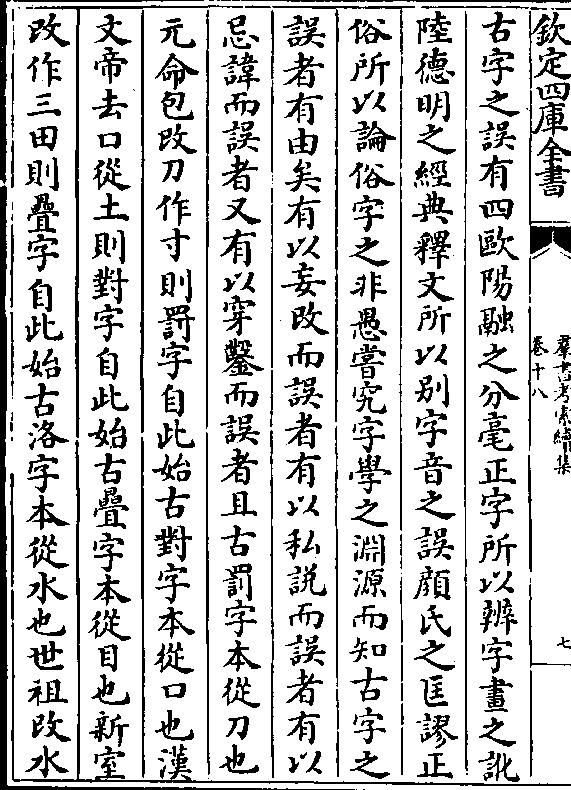 欽定四庫全書
羣書考索續集
卷十八
七
古字之誤有四歐陽融之分毫正字所以辨字畫之訛
陸德明之經典釋文所以别字音之誤顔氏之匡謬正
俗所以論俗字之非愚嘗究字學之淵源而知古字之
誤者有由矣有以妄改而誤者有以私説而誤者有以
忌諱而誤者又有以穿鑿而誤者且古罰字本從刀也
元命包改刀作寸則罸字自此始古對字本從口也漢
文帝去口從土則對字自此始古疊字本從目也新室
改作三田則疊字自此始古洛字本從水也世祖改水